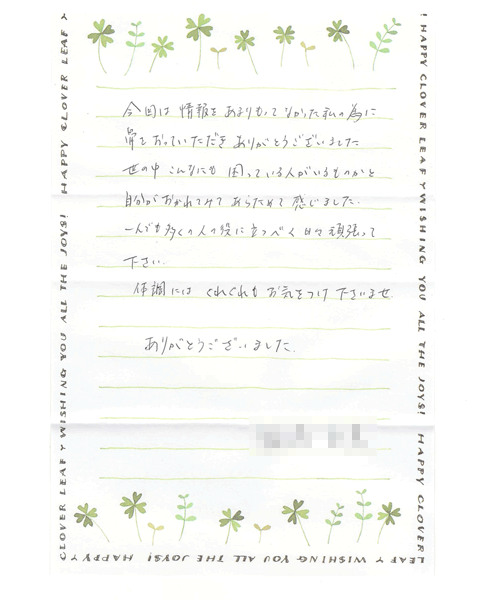 今回は 情報を あまりもってなかった私の為に
骨を おっていただき ありがとうございました
世の中 こんなにも 困っている人がいるものかと
自分がおかれてみて あらためて 感じました。
一人でも多くの人の役に立つべく 日々 頑張って
下さい。
体調には くれぐれも お気をつけ 下さいませ。
ありがとうございました。
! HAPPY CLOVER LEAF Y WISHING YOU ALL THE JOYS! HAPPY CLOVER
LEAF Y WISHING YOU ALL THE JOYS! HAPPY Y
CLOVER LEAF Y WISHING YOU ALL THE JOYS! HAPPY CLOVER LEAF Y